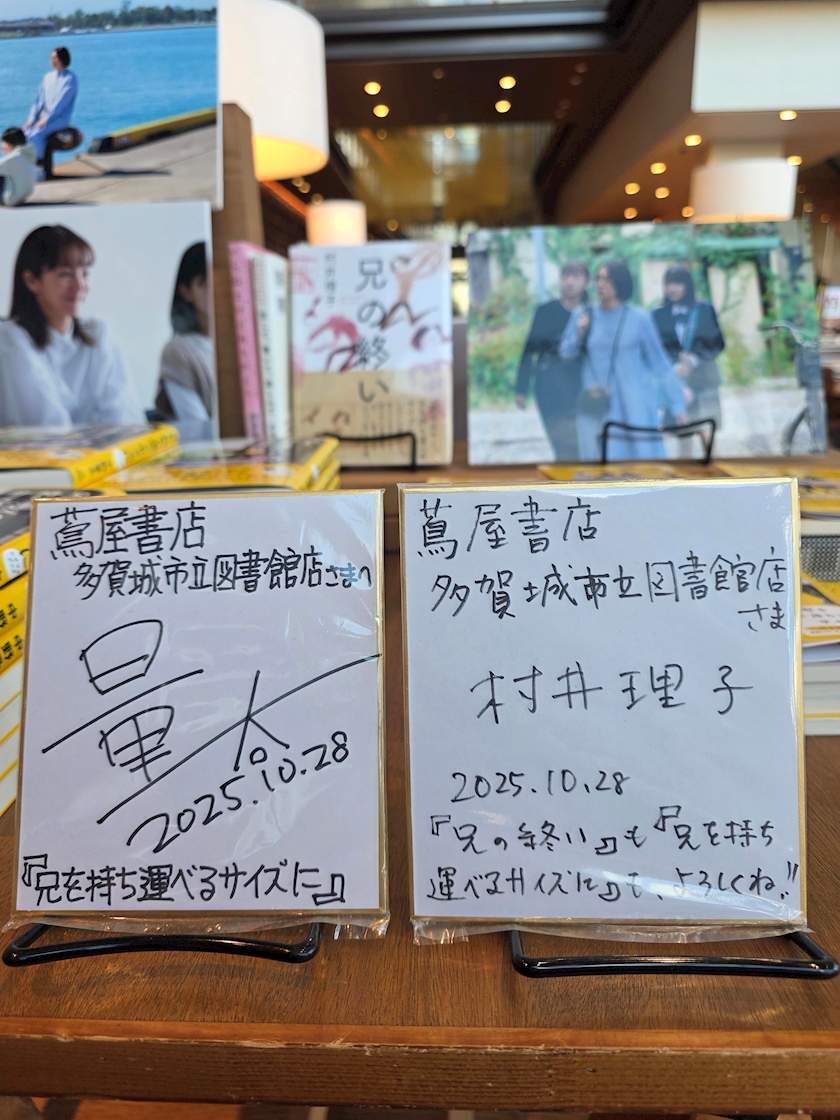 兄の終い
蔦屋書店
多賀城市立図書館店さまへ
量太
2025.10.28
『兄を持ち運べるサイズに』
蔦屋書店
多賀城市立図書館店
さま
村井理子
2025.10.28
『兄の終い』も『兄を持ち
運べるサイズに』も、よろしくね!!